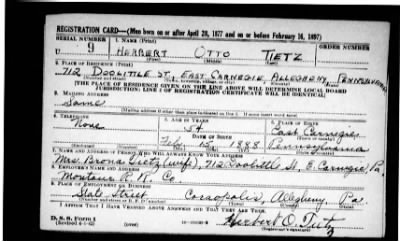 REGISTRATION CARD—(Men born on or after April 28, 1877 and on or before February 16, 1897)
SERIAL NUMBER 1. NAME (Print) ORDER NUMBER
U 9 HERBERT OTTO TIETZ
(First) (Middle) (Last)
2. PLACE OF RESIDENCE (Print)
712 DOOLITTLE ST. EAST CARNEGIE, ALLEGHENY, PENNSYLVANIA
[THE PLACE OF RESIDENCE GIVEN ON THE LINE ABOVE WILL DETERMINE LOCAL BOARD
JURISDICTION; LINE 2 OF REGISTRATION CERTIFICATE WILL BE IDENTICAL]
3. MAILING ADDRESS
Same
[Mailing address if other than place indicated on line 2. If same insert word same]
4. TELEPHONE 5. AGE IN YEARS 6. PLACE OF BIRTH
None 54 East Carnegie
DATE OF BIRTH
Feb. 15 1888 Pennsylvania
7. NAME AND ADDRESS OF PERSON WHO WILL ALWAYS KNOW YOUR ADDRESS
Mrs. Tietz (wife), 712 Doolittle St. E. Carnegie, Pa.
8. EMPLOYER'S NAME AND ADDRESS
Montour R. R. Co.
9. PLACE OF EMPLOYMENT OR BUSINESS
State Street Coraopolis, Allegheny Pa.
I AFFIRM THAT I HAVE VERIFIED ABOVE ANSWERS AND THAT THEY ARE TRUE.
D. S. S. FORM 1 Herbert O. Tietz
(Revised 4-1-42) (over) (Registrant's signature)